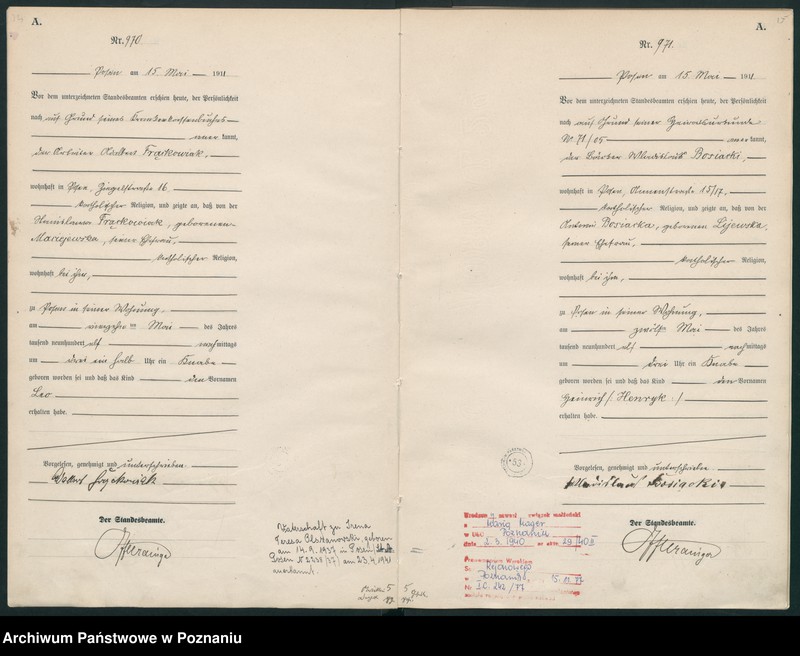 A.
Nr. 970.
Posen am 15. Mai 1911
Vor dem unterzeichneten Standesbeamten erschien heute, der Persönlichkeit
nach auf Grund seines Krankenkassenbuches
kannt,
der Arbeiter Adalbert Frąckowiak,
wohnhaft in Posen, Ziegelstraße 16.
katholischer Religion, und zeigte an, daß von der
Stanislawa Frąckowiak, geborenen
Maciejewska, seiner Ehefrau,
katholischer Religion,
wohnhaft bei ihm,
zu Posen in seiner Wohnung,
am vierzehnten Mai des Jahres
tausend neunhundert elf nachmittags
um drei ein halb Uhr ein Knabe
geboren worden sei und daß das Kind den Vornamen
Leo
erhalten habe.
Vorgelesen, genehmigt und unterschrieben
Der Standesbeamte.
Vaterschaft zu Irena
Teresa
am 14. 9. 1937 in Posen
Posen am 23. 4. 1941
anerkannt.
A.
Nr. 971.
Posen am 15. Mai 1911
Vor dem unterzeichneten Standesbeamten erschien heute, der Persönlichkeit
nach auf Grund seiner Heiratsurkunde
N. 71/05 kannt,
der Wladislaus Bosiacki,
wohnhaft in Posen, Annenstraße 15/17,
katholischer Religion, und zeigte an, daß von der
Antonie Bosiacka, geborenen Lijewska,
seiner Ehefrau,
katholischer Religion,
wohnhaft bei ihm,
zu Posen in seiner Wohnung,
am zwölften Mai des Jahres
tausend neunhundert elf nachmittags
um drei Uhr ein Knabe
geboren worden sei und daß das Kind den Vornamen
Heinrich (: Henryk :)
erhalten habe.
Vorgelesen, genehmigt und unterschrieben
Wladislaus Bosiacki
Der Standesbeamte.
53
związek małżeński
w USC Poznaniu
dnia 2. 3. 1940 nr aktu
15. 11. 77
Archiwum Państwowe w Poznaniu